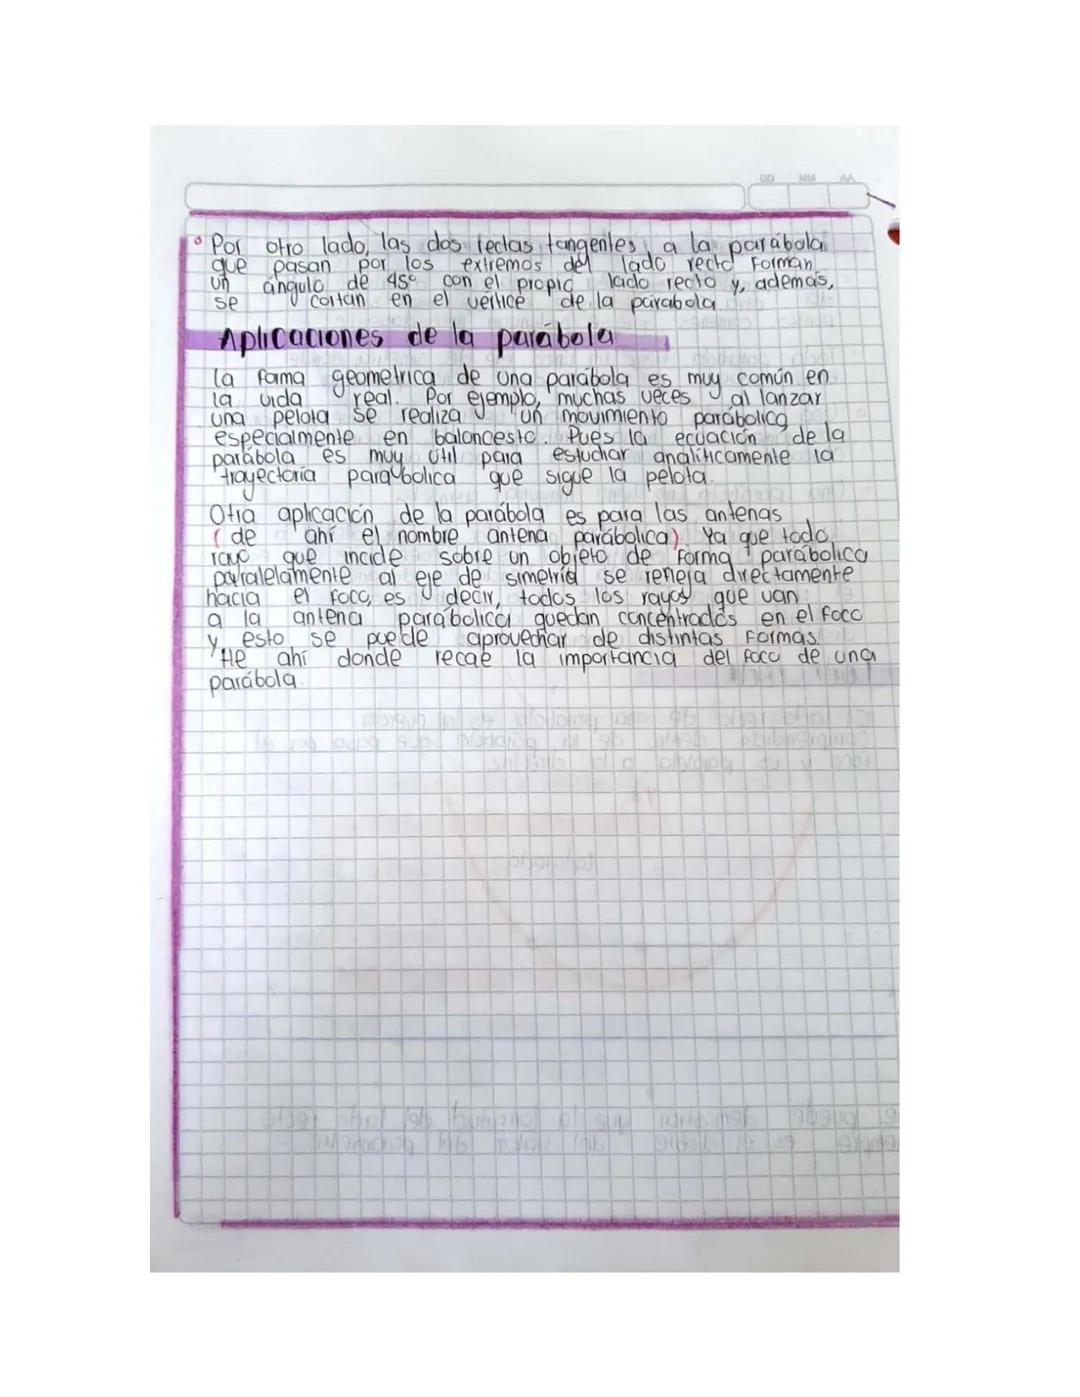 DD MM AA
Por otro lado, las dos rectas tangentes a la parábola
que pasan por los extremos del lado recto forman
un ángulo de 45° con el propio lado recto y, además,
se cortan en el vértice de la parabola.
Aplicaciones de la parábola
La forma geometrica de una parábola es muy común en
la vida real. Por ejemplo, muchas veces al lanzar
una pelota se realiza un movimiento parábolico,
especialmente en baloncesto. Pues la ecuación de la
parábola es muy útil para estudiar analíticamente la
trayectoria parabolica que sigue la pelota.
Otra aplicación de la parábola es para las antenas
(de ahí el nombre antena parábolica). Ya que todo
rayo que incide sobre un objeto de forma parabolica
paralelamente al eje de simetría se refleja directamente
hacia el foco, es decir, todos los rayos que van
a la antena parábolica quedan concentrados en el foco
y esto se puede aprovechar de distintas formas.
He ahí donde recae la importancia del foco de una
parábola.